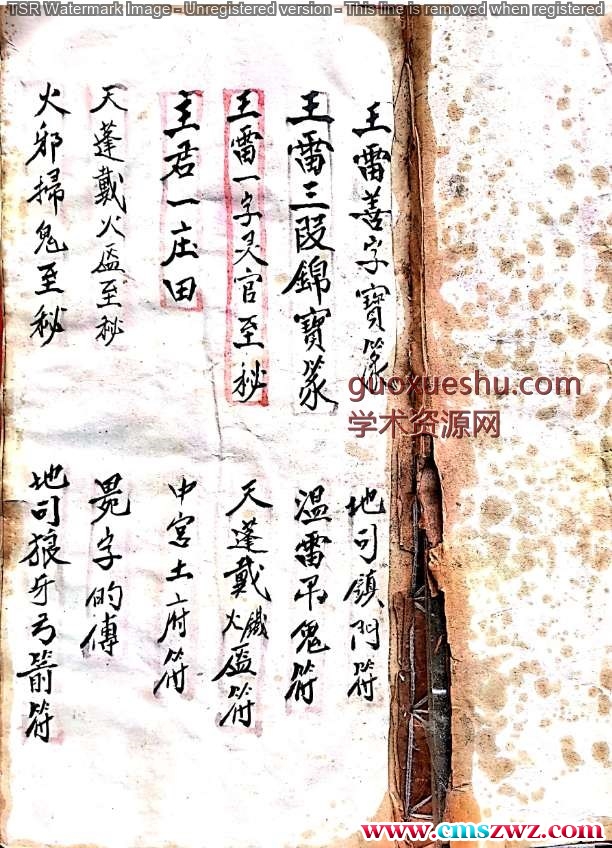 TSR Watermark Image - Unregistered version - This line is removed when registered
王雷善字寶篆
地司鎮門符
王雷三段錦寶篆
溫雷吊鬼符
王雷一字灵官至秘
天蓬戴火鐵盔符
主君一庄田
中宮土府符
天蓬戴火盔至秘
字的傳
火邪掃鬼至秘
地司狼牙弓箭符
guoxueshu.com
学术资源网
www.cmszwz.com